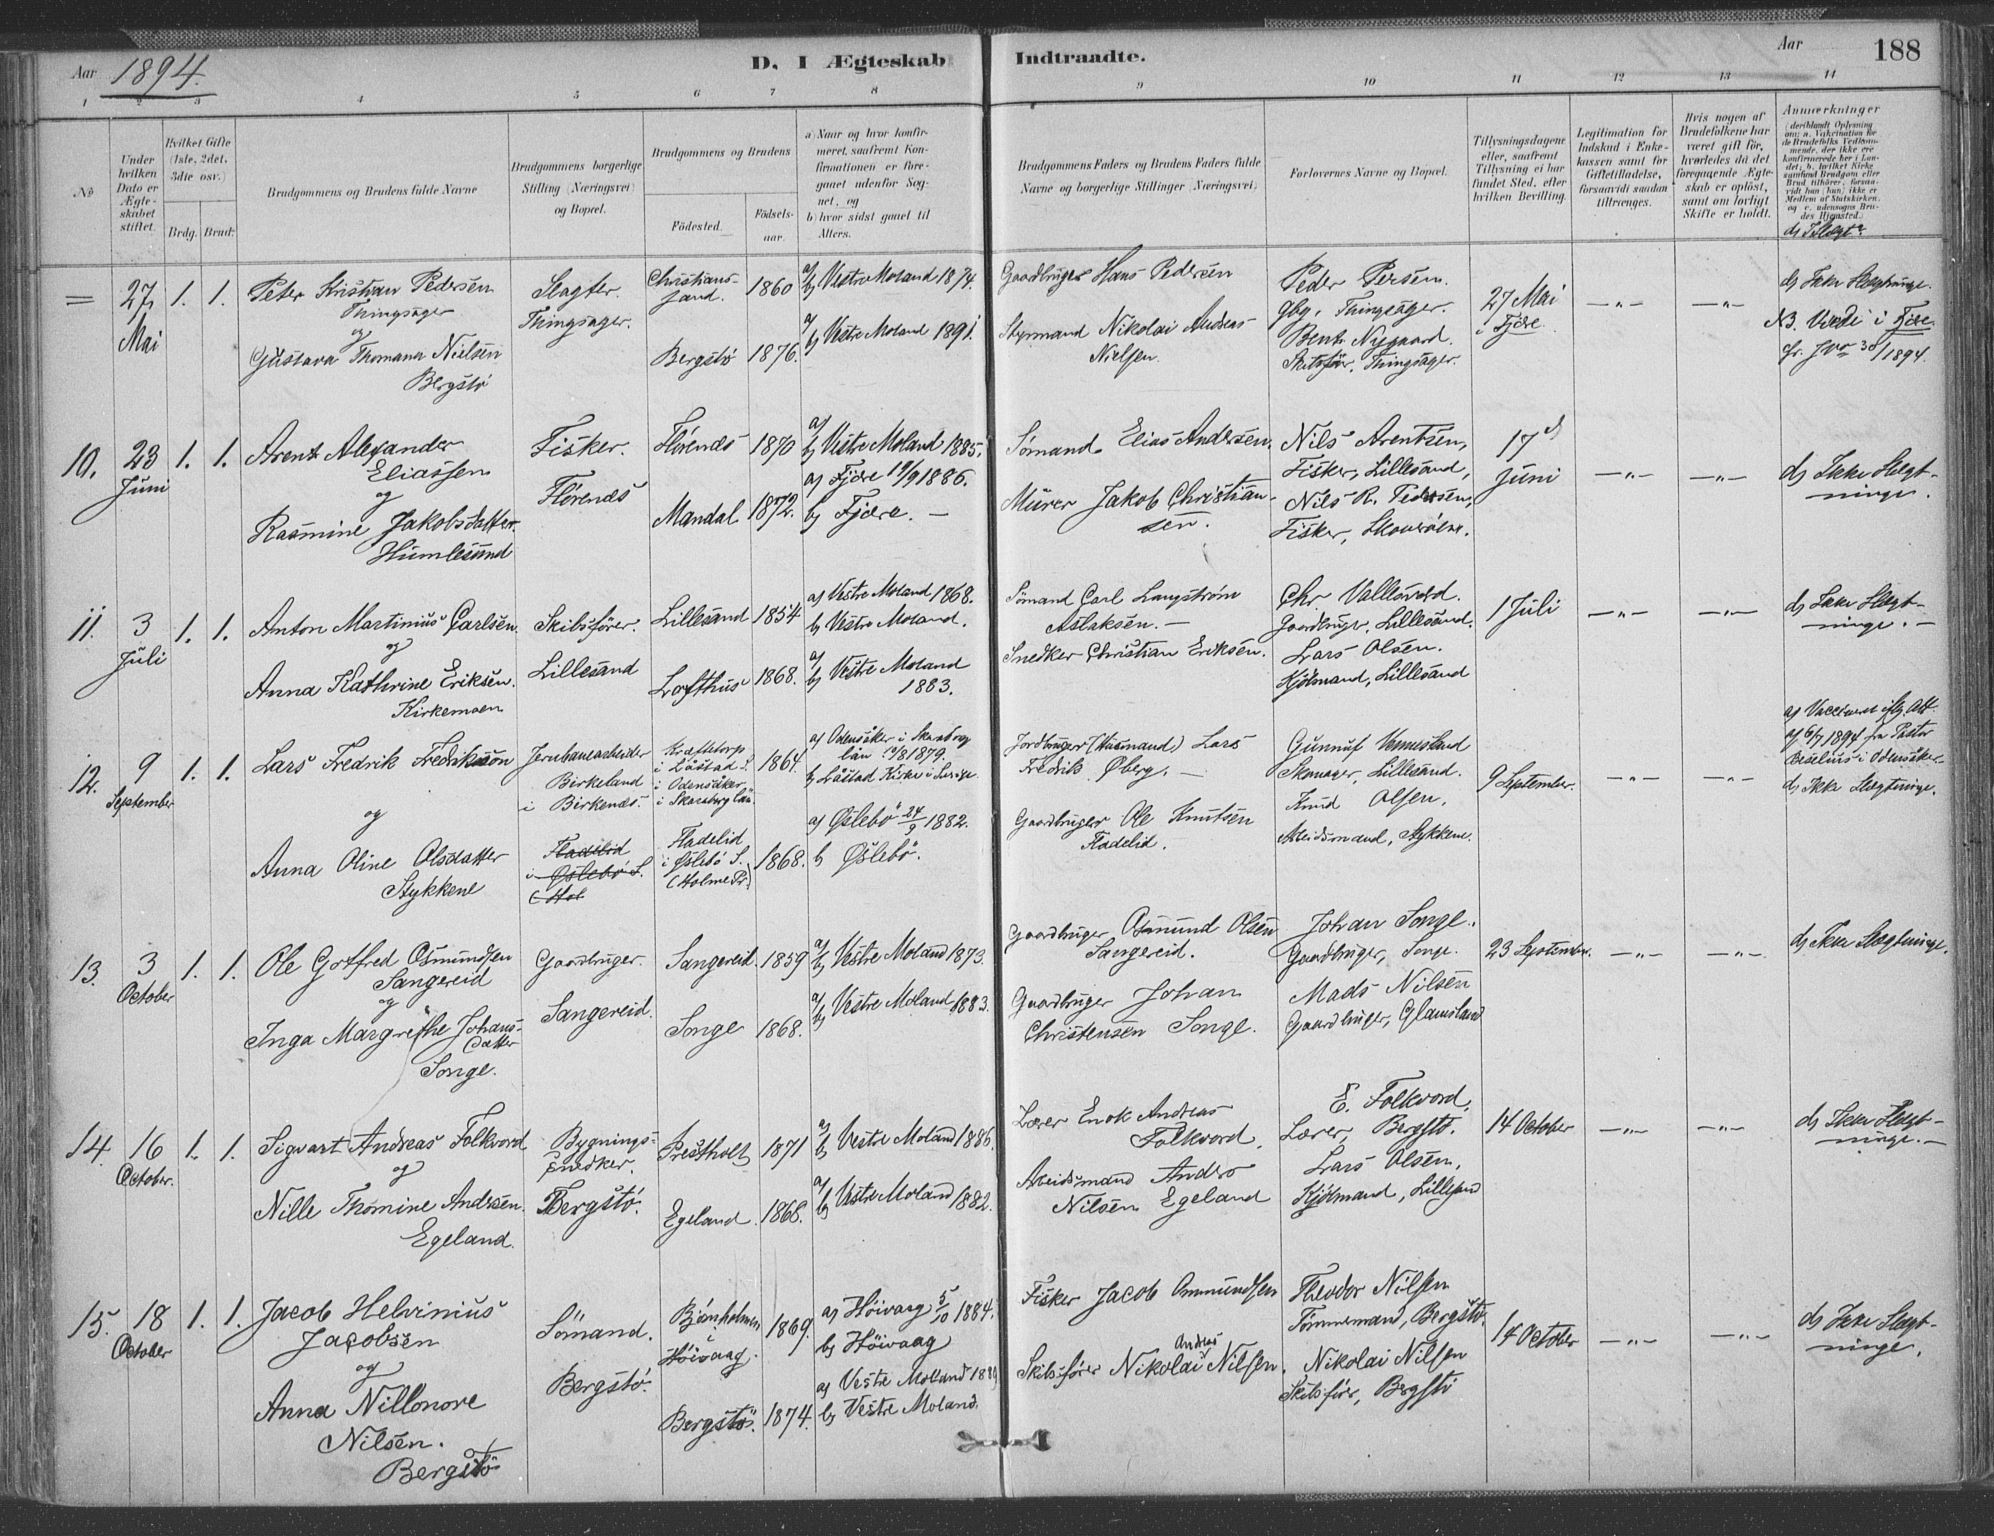 Aar 1894.
D. I Ægteskab Indtraadte.
Aar 188
1 2 3 4 5 6 7 8 9 10 11 12 13 14
No
Under hvilken Dato er Ægteskabet stiftet.
Hvilket Gifte (1ste, 2det, 3dte osv.)
Brdg. Brud.
Brudgommens og Brudens fulde Navne
Brudgommens borgerlige Stilling (Næringsvei) og Bopæl.
Brudgommens og Brudens
Fødested.
Fødselsaar.
a) Naar og hvor konfirmeret, saafremt Konfirmationen er foregaaet udenfor Sognet, og
b) hvor sidst gaaet til Alters.
Brudgommens Faders og Brudens Faders fulde Navne og borgerlige Stillinger (Næringsvei).
Forlovernes Navne og Bopæl.
Tillysningsdagene eller, saafremt Tillysning ei har fundet Sted, efter hvilken Bevilling.
Legitimation for Indskud i Enkekassen samt for Giftetilladelse, forsaavidt saadan tiltrænges.
Hvis nogen af Brudefolkene har været gift før, hvorledes da det foregaaende Ægteskab er opløst, samt om lovligt Skifte er holdt.
Anmærkninger
(deriblandt Oplysning om: a. Vakcination for de Brudefolks Vedkommende, der ikke ere konfirmerede her i Landet; b. hvilket Kirkesamfund Brudgom eller Brud tilhører, forsaavidt han (hun) ikke er Medlem af Statskirken, og c. udensogns Brudes Hjemsted.)
=
27 Mai
1. 1.
Peter Kristian Pedersen
Thingsager
og
Gustava Thomana Nielsen
Bergstö
Slagter.
Thingsager.
Christianssand.
Bergstö
1860
1876.
a/ b/ Vestre Moland 1874.
a/ b/ Vestre Moland 1891.
Gaardbruger Hans Pedersen
Styrmand Nikolai Andreas
Nielsen.
Peder Persen.
Gbg. Thingsager.
Bent Nygaard.
Skibsfører, Thingsager.
27 Mai
i Fjære
—„— —„—
d) Ikke Slægtninge.
NB. Viede i Fjære.
10.
23 Juni
1. 1.
Arent Alexander
Eliassen
og
Rasmine Jakobsdatter
Humlesund
Fisker.
Flørenæs
Flörenæs
Mandal
1870
1872.
a/ b/ Vestre Moland 1885.
a) Fjære 19/9 1886.
b) Fjære. —
Sømand Elias Andersen.
Murer Jakob Christiansen.
Nils Arentsen,
Fisker, Lillesand,
Nils R. Pedersen,
Fisker,
17d Juni
—„— —„—
d) Ikke Slægtninge.
11.
3 Juli
1. 1.
Anton Martinius Carlsen
og
Anna Kathrine Eriksen.
Kirkemoen
Skibsfører.
Lillesand
Lillesand
Lofthus
1854
1868.
a) Vestre Moland 1868.
b) Vestre Moland.
a/ b/ Vestre Moland
1883.
Sömand Carl Langstrøm
Aslaksen. —
Snedker Christian Eriksen.
Chr Vallevold.
Gaardbruger, Lillesand.
Lars Olsen.
Kjöbmand, Lillesand
1 Juli
—„— —„—
d) Ikke Slægtninge. —
12.
9 September
1. 1.
Lars Fredrik Fredriksson
og
Anna Oline Olsdatter
Stykkene
Jernbanearbeider
Birkeland
i Birkenæs.
Fladelid
i Øslebö S.
(Hol
i Låstad S.
i Odensåker
i Skaraborg län.
Fladelid
i Øslebö S.
(Holme Pr.)
1864.
1868.
a) Odensåker i Skaraborg
län 1879.
b) Låstad Kirke i Sverige.
a) Øslebö 24/9 1882.
b) Øslebö.
Jordbruger (Husmand) Lars
Fredrik Øberg. —
Gaardbruger Ole Knutsen
Fladelid.
Gunnuf Vennesland
Skomager, Lillesand.
Knud Olsen,
Arbeidsmand, Stykkene.
9 September.
—„— —„—
a) Vaccineret iflg. Att.
af 6/7 1894 fra Pastor
i Odensåker.
d) Ikke Slægtninge.
13.
3 October
1. 1.
Ole Gotfred Osmundsen
Sangereid
og
Inga Margrethe Johans-
datter
Songe.
Gaardbruger.
Sangereid.
Sangereid
Songe
1859
1868.
a/ b/ Vestre Moland 1873.
a/ b/ Vestre Moland 1883.
Gaardbruger Osmund Olsen
Sangereid.
Gaardbruger Johan
Christensen Songe.
Johan Songe.
Gaardbruger, Songe.
Mads Nilsen
Gaardbruger, Glamsland
23 September.
—„— —„—
d) Ikke Slægtninge.
14.
16 October.
1. 1.
Sigvart Andreas Folkvord
og
Nille Thomine Andersen.
Egeland.
Bygnings-
snedker.
Bergstö.
Prestholt
Egeland.
1871
1868.
a/ b/ Vestre Moland 1886.
a/ b/ Vestre Moland 1882.
Lærer Enok Andreas
Folkvord.
Arbeidsmand Anders
Nilsen Egeland
E. Folkvord,
Lærer, Bergstö.
Lars Olsen,
Kjöbmand, Lillesand
14 October
—„— —„—
d) Ikke Slægtninge. —
15.
18 October
1. 1.
Jacob Helvinius
Jacobsen
og
Anna Nillonore
Nilsen.
Bergstö
Sömand.
Bergstö.
Bjönholmen
Höivaag.
Bergstö.
1869.
1874.
a) Höivaag 5/10 1884.
b) Höivaag
a) Vestre Moland
b) Vestre Moland.
Fisker Jacob Ommundsen
Skibsfører Nikolai Andreas Nilsen.
Theodor Nilsen
Tömmermand, Bergstö.
Nikolai Nilsen
Skibsfører, Bergstö
14 October
—„— —„—
d) Ikke Slægtninge.